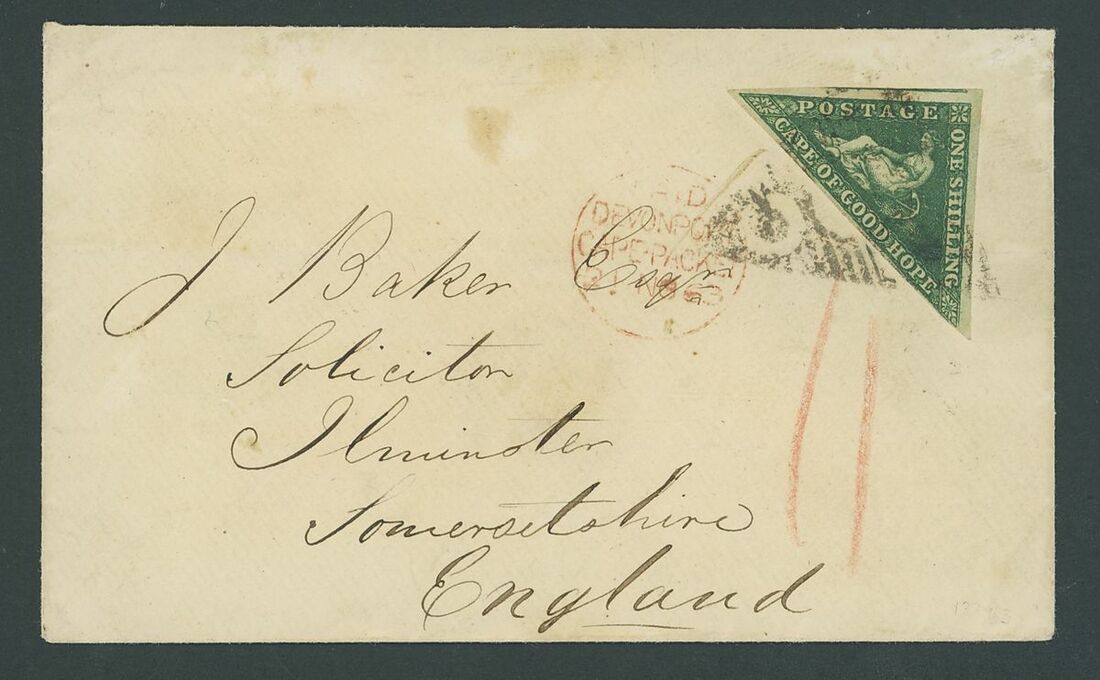 POSTAGE
ONE SHILLING
CAPE OF GOOD HOPE
DEVONPORT
CAPE-PACKET
J Baker Esqr
Solicitor
Ilminster
Somersetshire
England